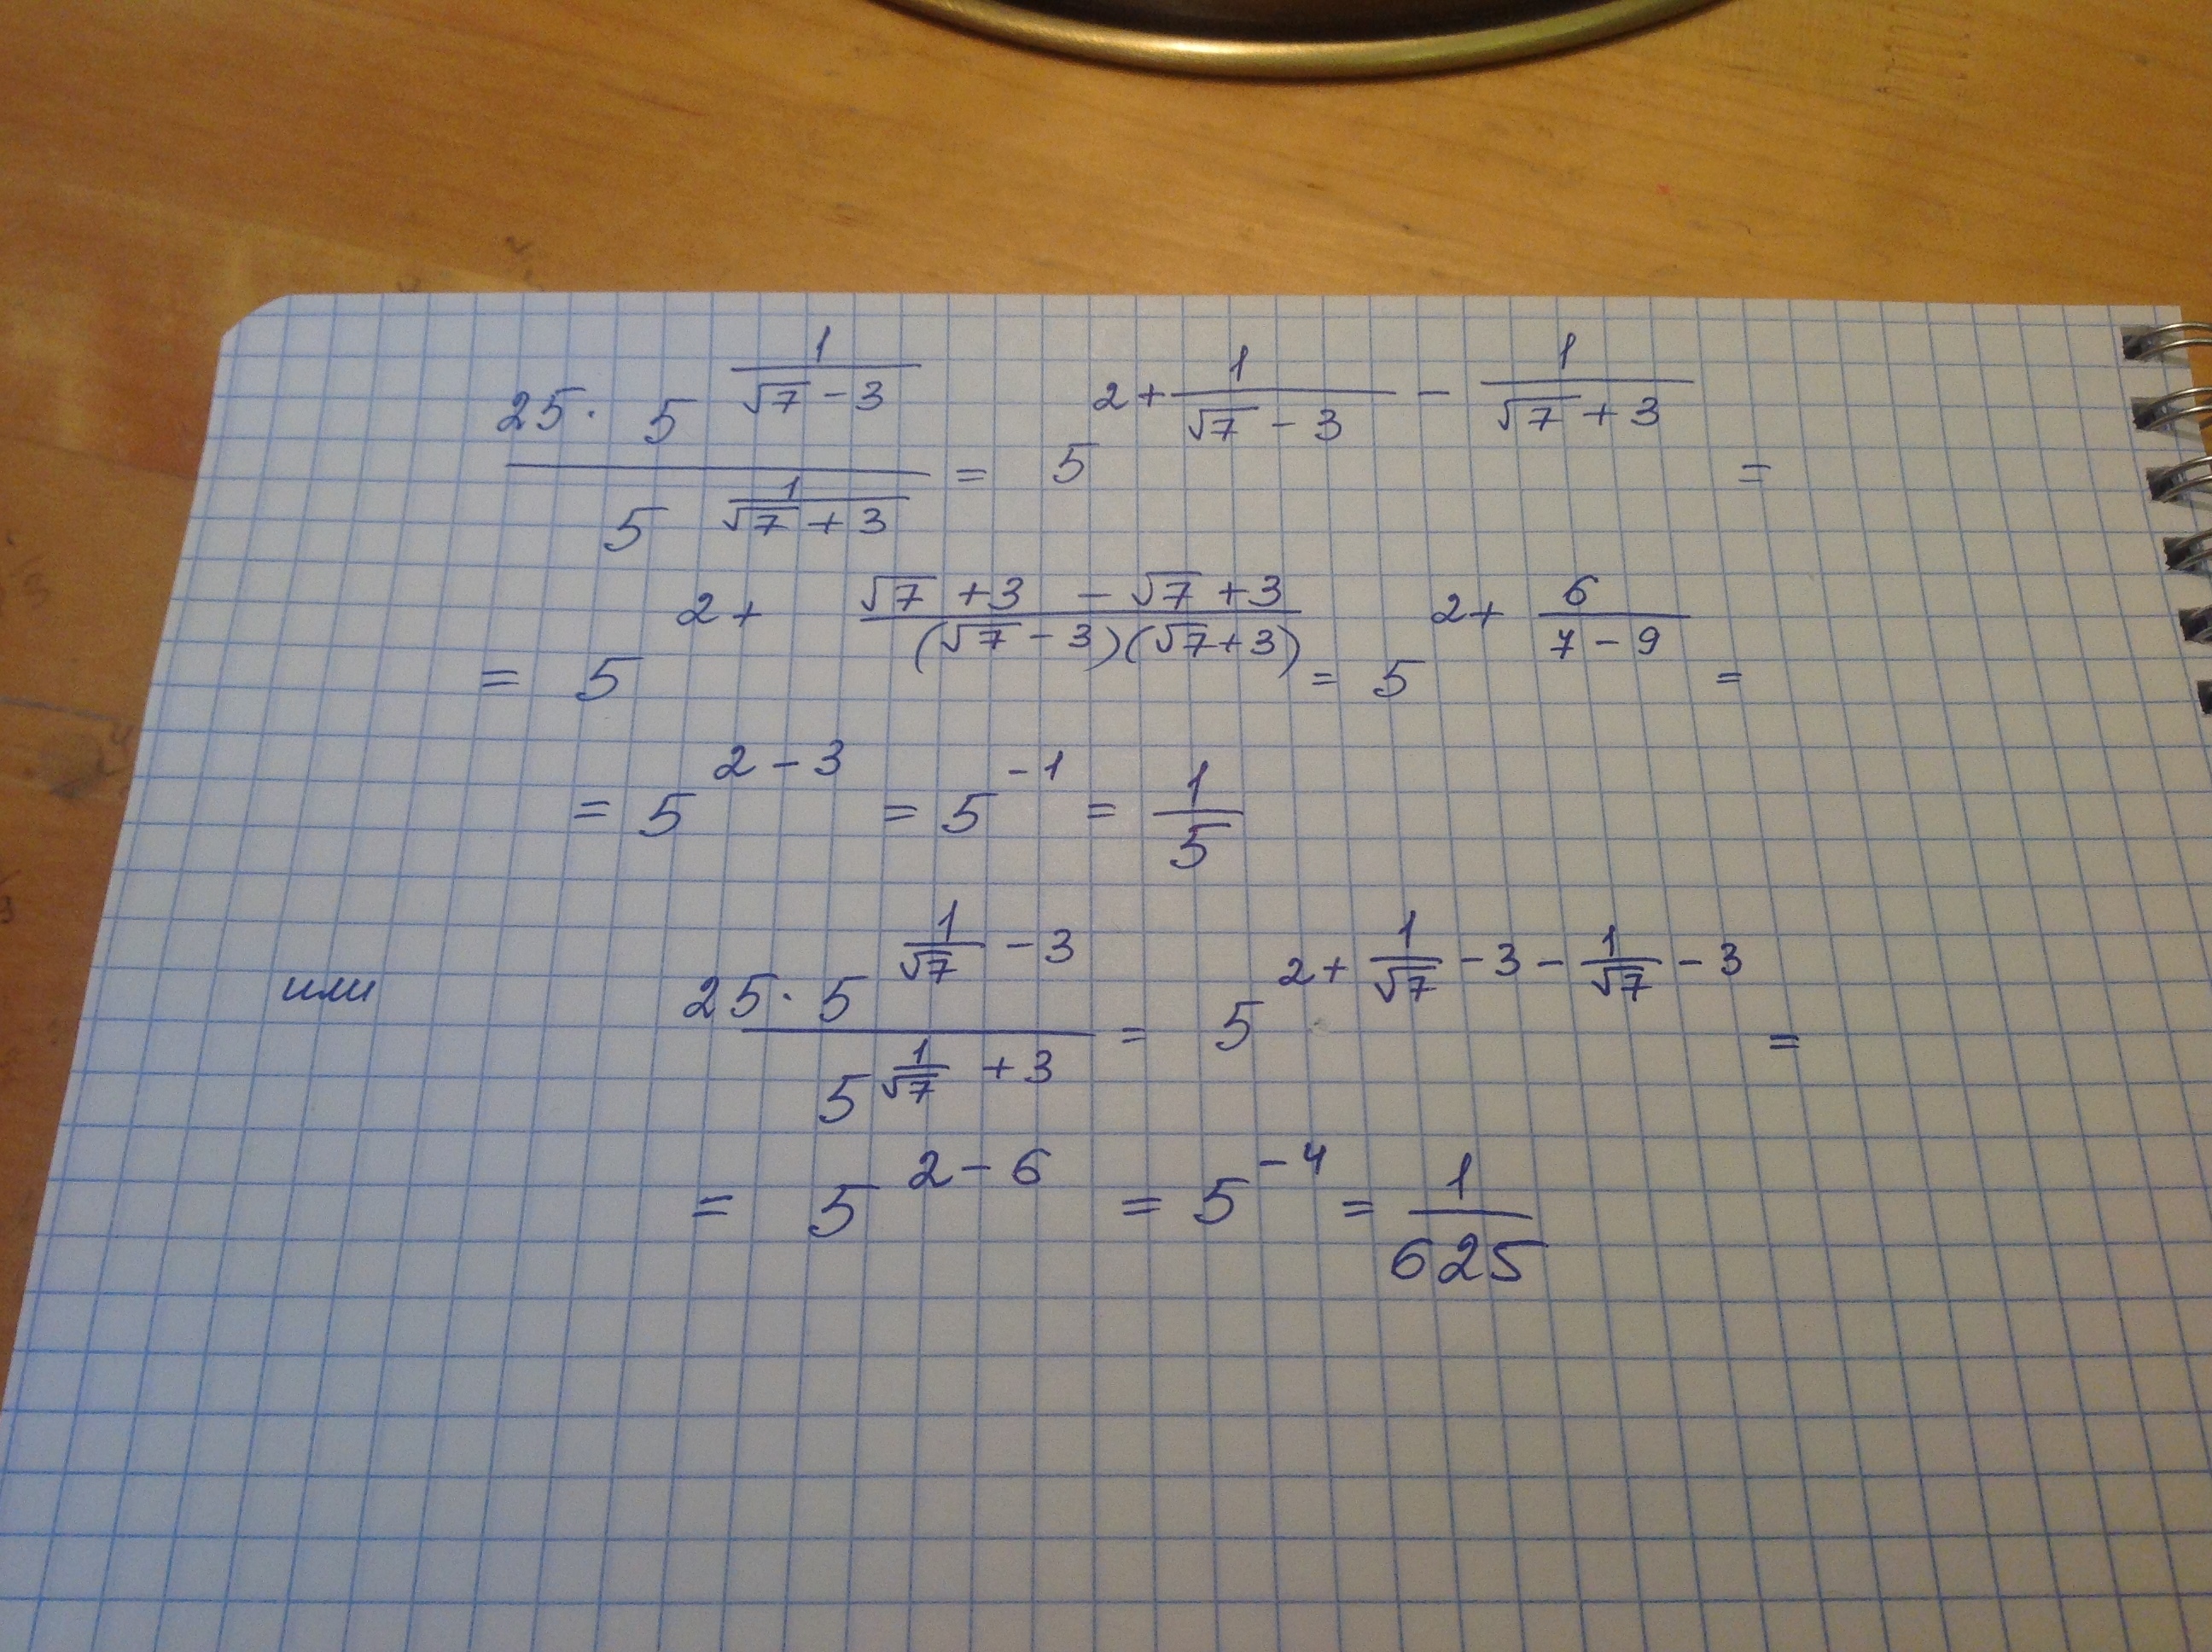 25 · 5^(1/(√7 − 3)) / 5^(1/(√7 + 3)) = 5^(2 + 1/(√7 − 3) − 1/(√7 + 3)) =
= 5^(2 + (√7 + 3 − √7 + 3)/((√7 − 3)(√7 + 3))) = 5^(2 + 6/(7 − 9)) =
= 5^(2 − 3) = 5^(−1) = 1/5
или 25 · 5^(1/√7 − 3) / 5^(1/√7 + 3) = 5^(2 + 1/√7 − 3 − 1/√7 − 3) =
= 5^(2 − 6) = 5^(−4) = 1/625